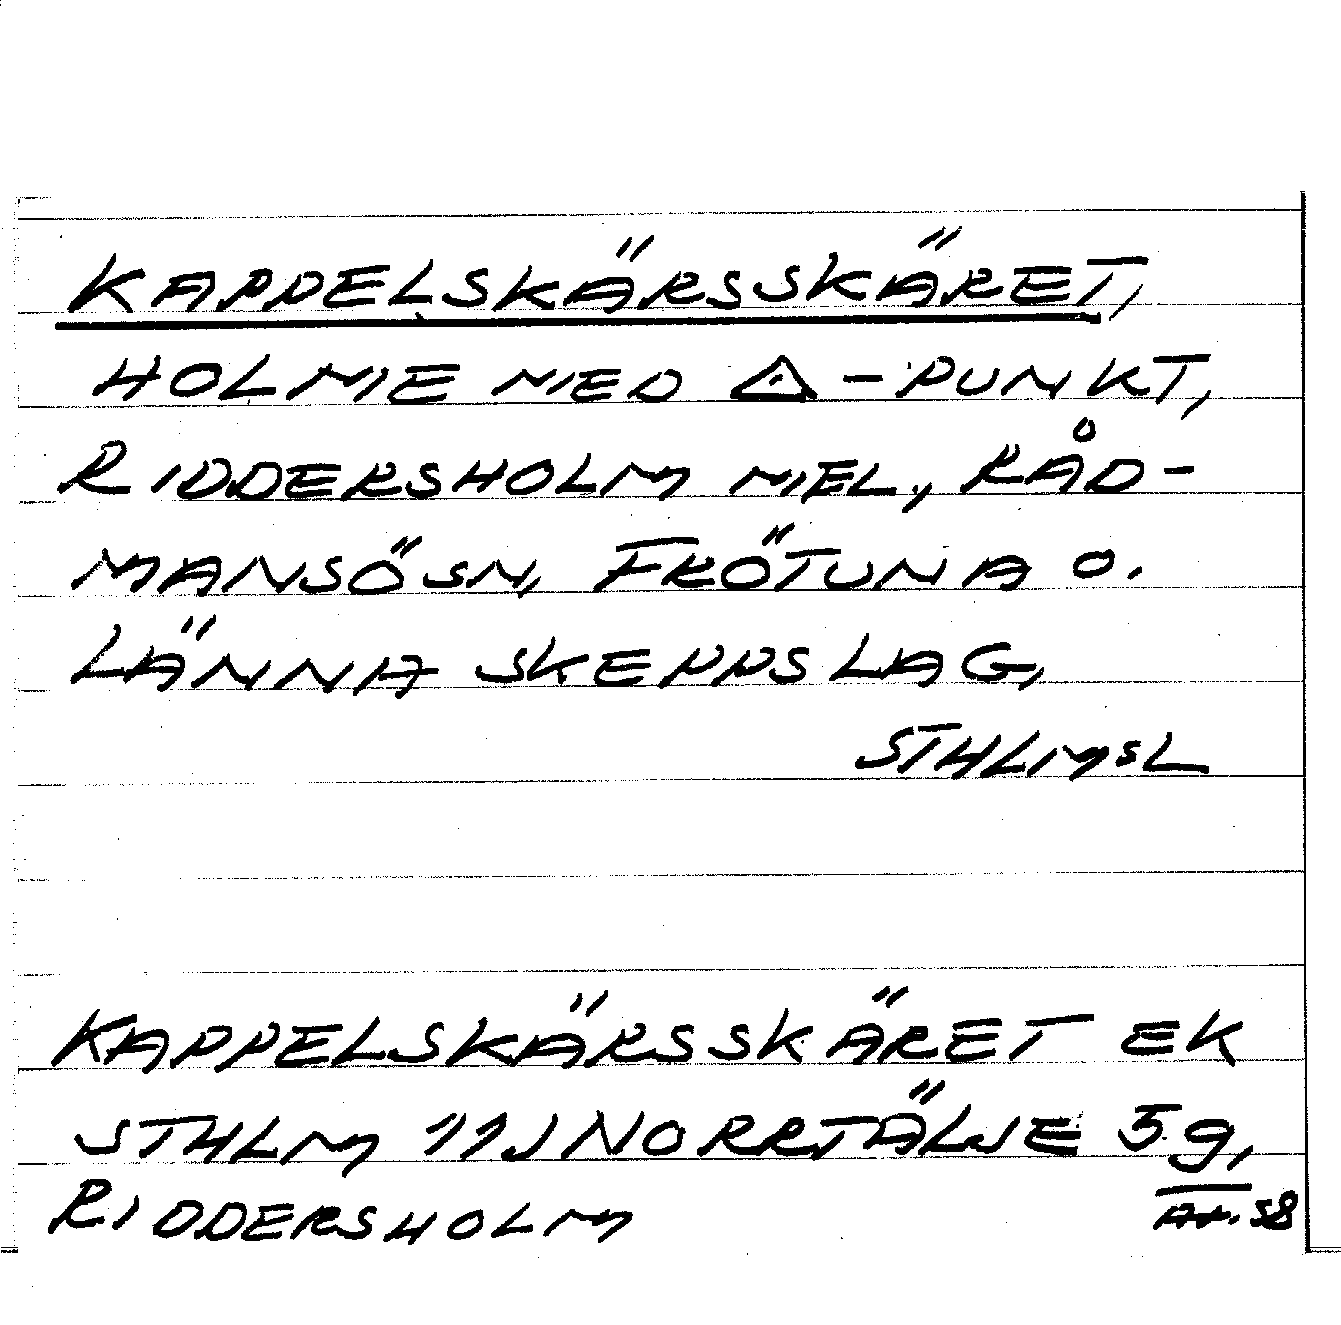 KAPPELSKÄRSSKÄRET,
HOLME MED △-PUNKT,
RIDDERSHOLM MEL., RÅD-
MANSÖ SN, FRÖTUNA O.
LÄNNA SKEPPSLAG,
STHLMSL
KAPPELSKÄRSSKÄRET EK
STHLM 11J NORRTÄLJE 5g,
RIDDERSHOLM
58